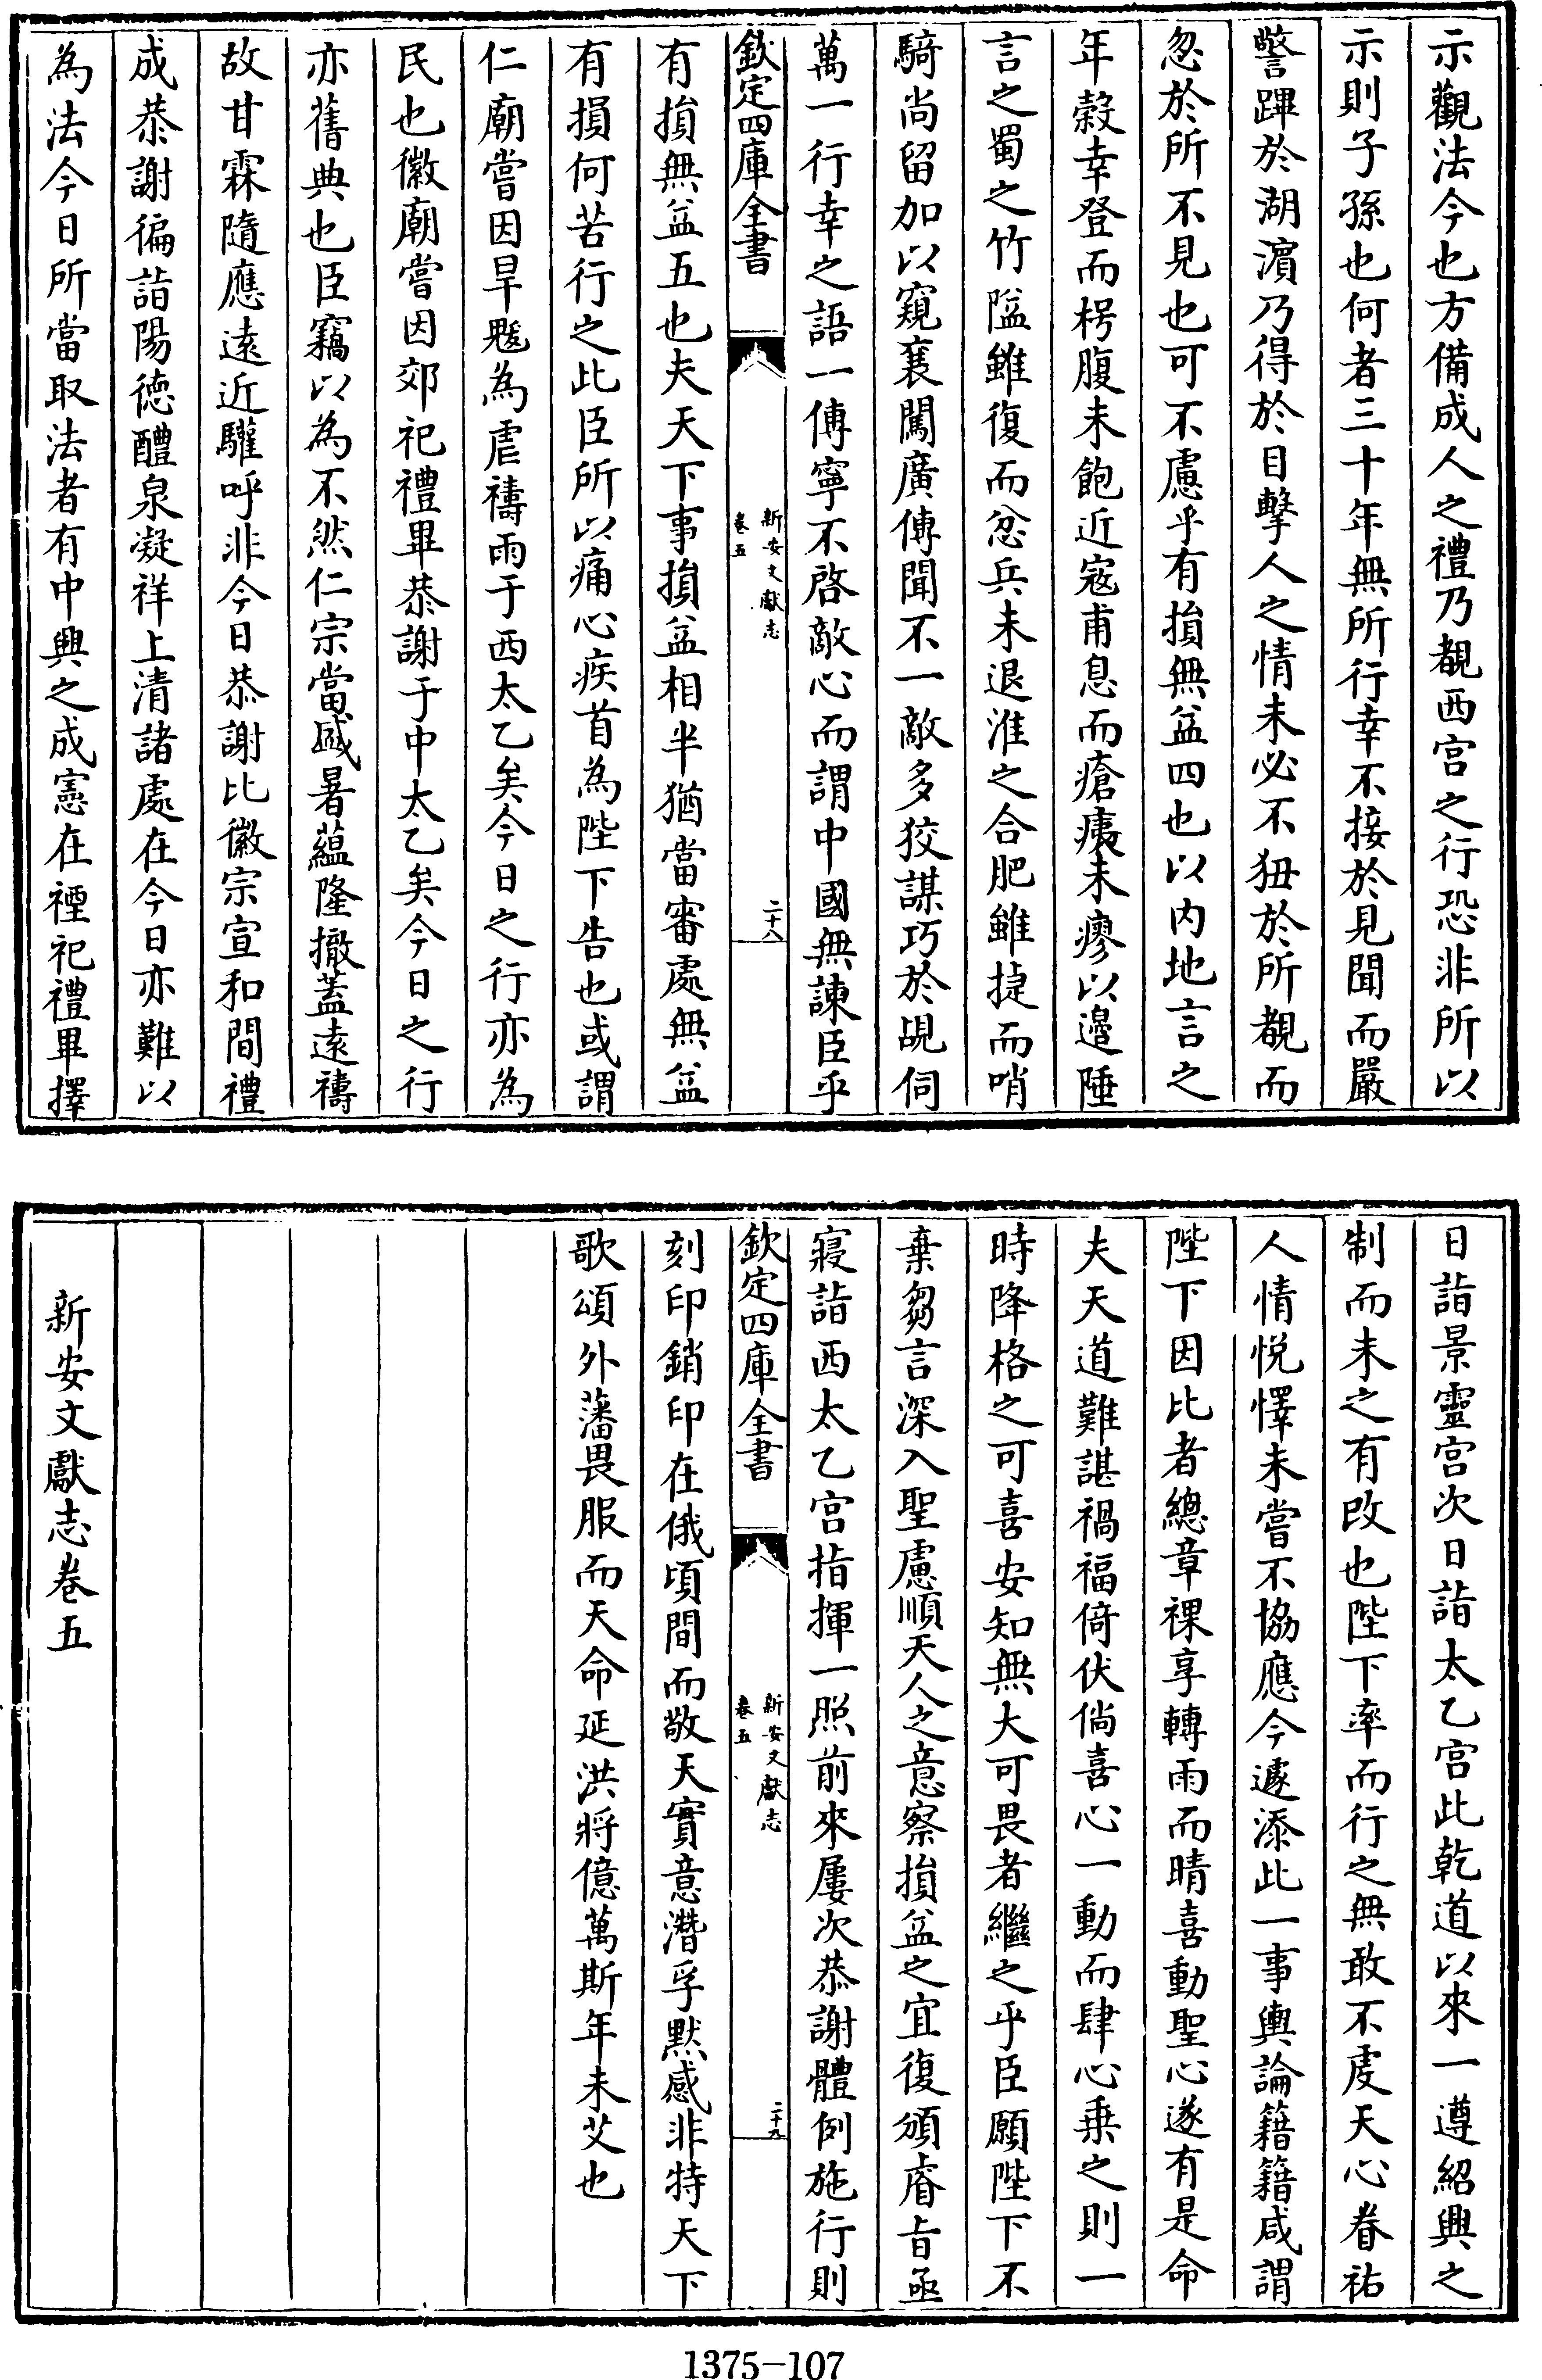 示觀法今也方備成人之禮乃覩西宫之行恐非所以
示則子孫也何者三十年無所行幸不接於見聞而嚴
警蹕於湖濵乃得於目擊人之情未必不狃於所覩而
忽於所不見也可不慮乎有損無益四也以内地言之
年穀幸登而枵腹未飽近宼甫息而瘡痍未瘳以邊陲
言之蜀之竹隘雖復而忿兵未退淮之合肥雖㨗而哨
騎尚留加以窺㐮闖廣傳聞不一敵多狡謀巧於覘伺
萬一行幸之語一傳寧不啓敵心而謂中國無諫臣乎
欽定四庫全書
新安文獻志
卷五
二十八
有損無益五也夫天下事損益相半猶當審處無益
有損何苦行之此臣所以痛心疾首為陛下告也或謂
仁廟嘗因旱魃為虐禱雨于西太乙矣今日之行亦為
民也徽廟嘗因郊祀禮畢恭謝于中太乙矣今日之行
亦舊典也臣竊以為不然仁宗當盛暑蘊隆撤蓋遠禱
故甘霖隨應遠近驩呼非今日恭謝比徽宗宣和間禮
成恭謝徧詣陽德醴泉凝祥上清諸處在今日亦難以
為法今日所當取法者有中興之成憲在禋祀禮畢擇
日詣景靈宫次日詣太乙宫此乾道以來一遵紹興之
制而未之有改也陛下率而行之無敢不䖍天心眷祐
人情悦懌未嘗不協應今遽添此一事輿論籍籍咸謂
陛下因比者總章祼享轉雨而晴喜動聖心遂有是命
夫天道難諶禍福倚伏倘喜心一動而肆心乗之則一
時降格之可喜安知無大可畏者繼之乎臣願陛下不
棄芻言深入聖慮順天人之意察損益之宜復頒睿㫖亟
寢詣西太乙宫指揮一照前來屢次恭謝體例施行則
欽定四庫全書
新安文獻志
卷五
二十九
刻印銷印在俄頃間而敬天實意潛孚黙感非特天下
歌頌外藩畏服而天命延洪將億萬斯年未艾也
新安文獻志卷五
1375-107